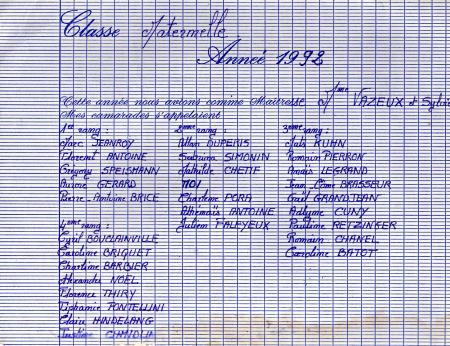 Classe Maternelle
Année 1992
Cette année nous avions comme Maîtresse Mme VAZEUX et Sylvie
Mes camarades s'appelaient
1er rang :
Marc JEANROY
Florent ANTOINE
Grégory SPEISMANN
Aurore GERARD
Pierre-Antoine BRICE
2ème rang :
Allan DUPERIS
Sabrina SIMONIN
Mathilde CHETIF
MOI
Charlène PORA
Athenaïs ANTOINE
Julien FALEYEUX
3ème rang :
KUHN
Romain PIERRON
Anaïs LEGRAND
Jean-Côme BRASSEUR
Gaël GRANDJEAN
CUNY
Pauline RETZINGER
Romain CHANEL
Caroline BATOT
4ème rang :
Cyril BOUCLAINVILLE
Caroline BRIGUET
Charline BARBIER
Alexandre NOEL
Florence THIRY
Tiphanie PONTELLINI
Claire HINDELANG
Justine